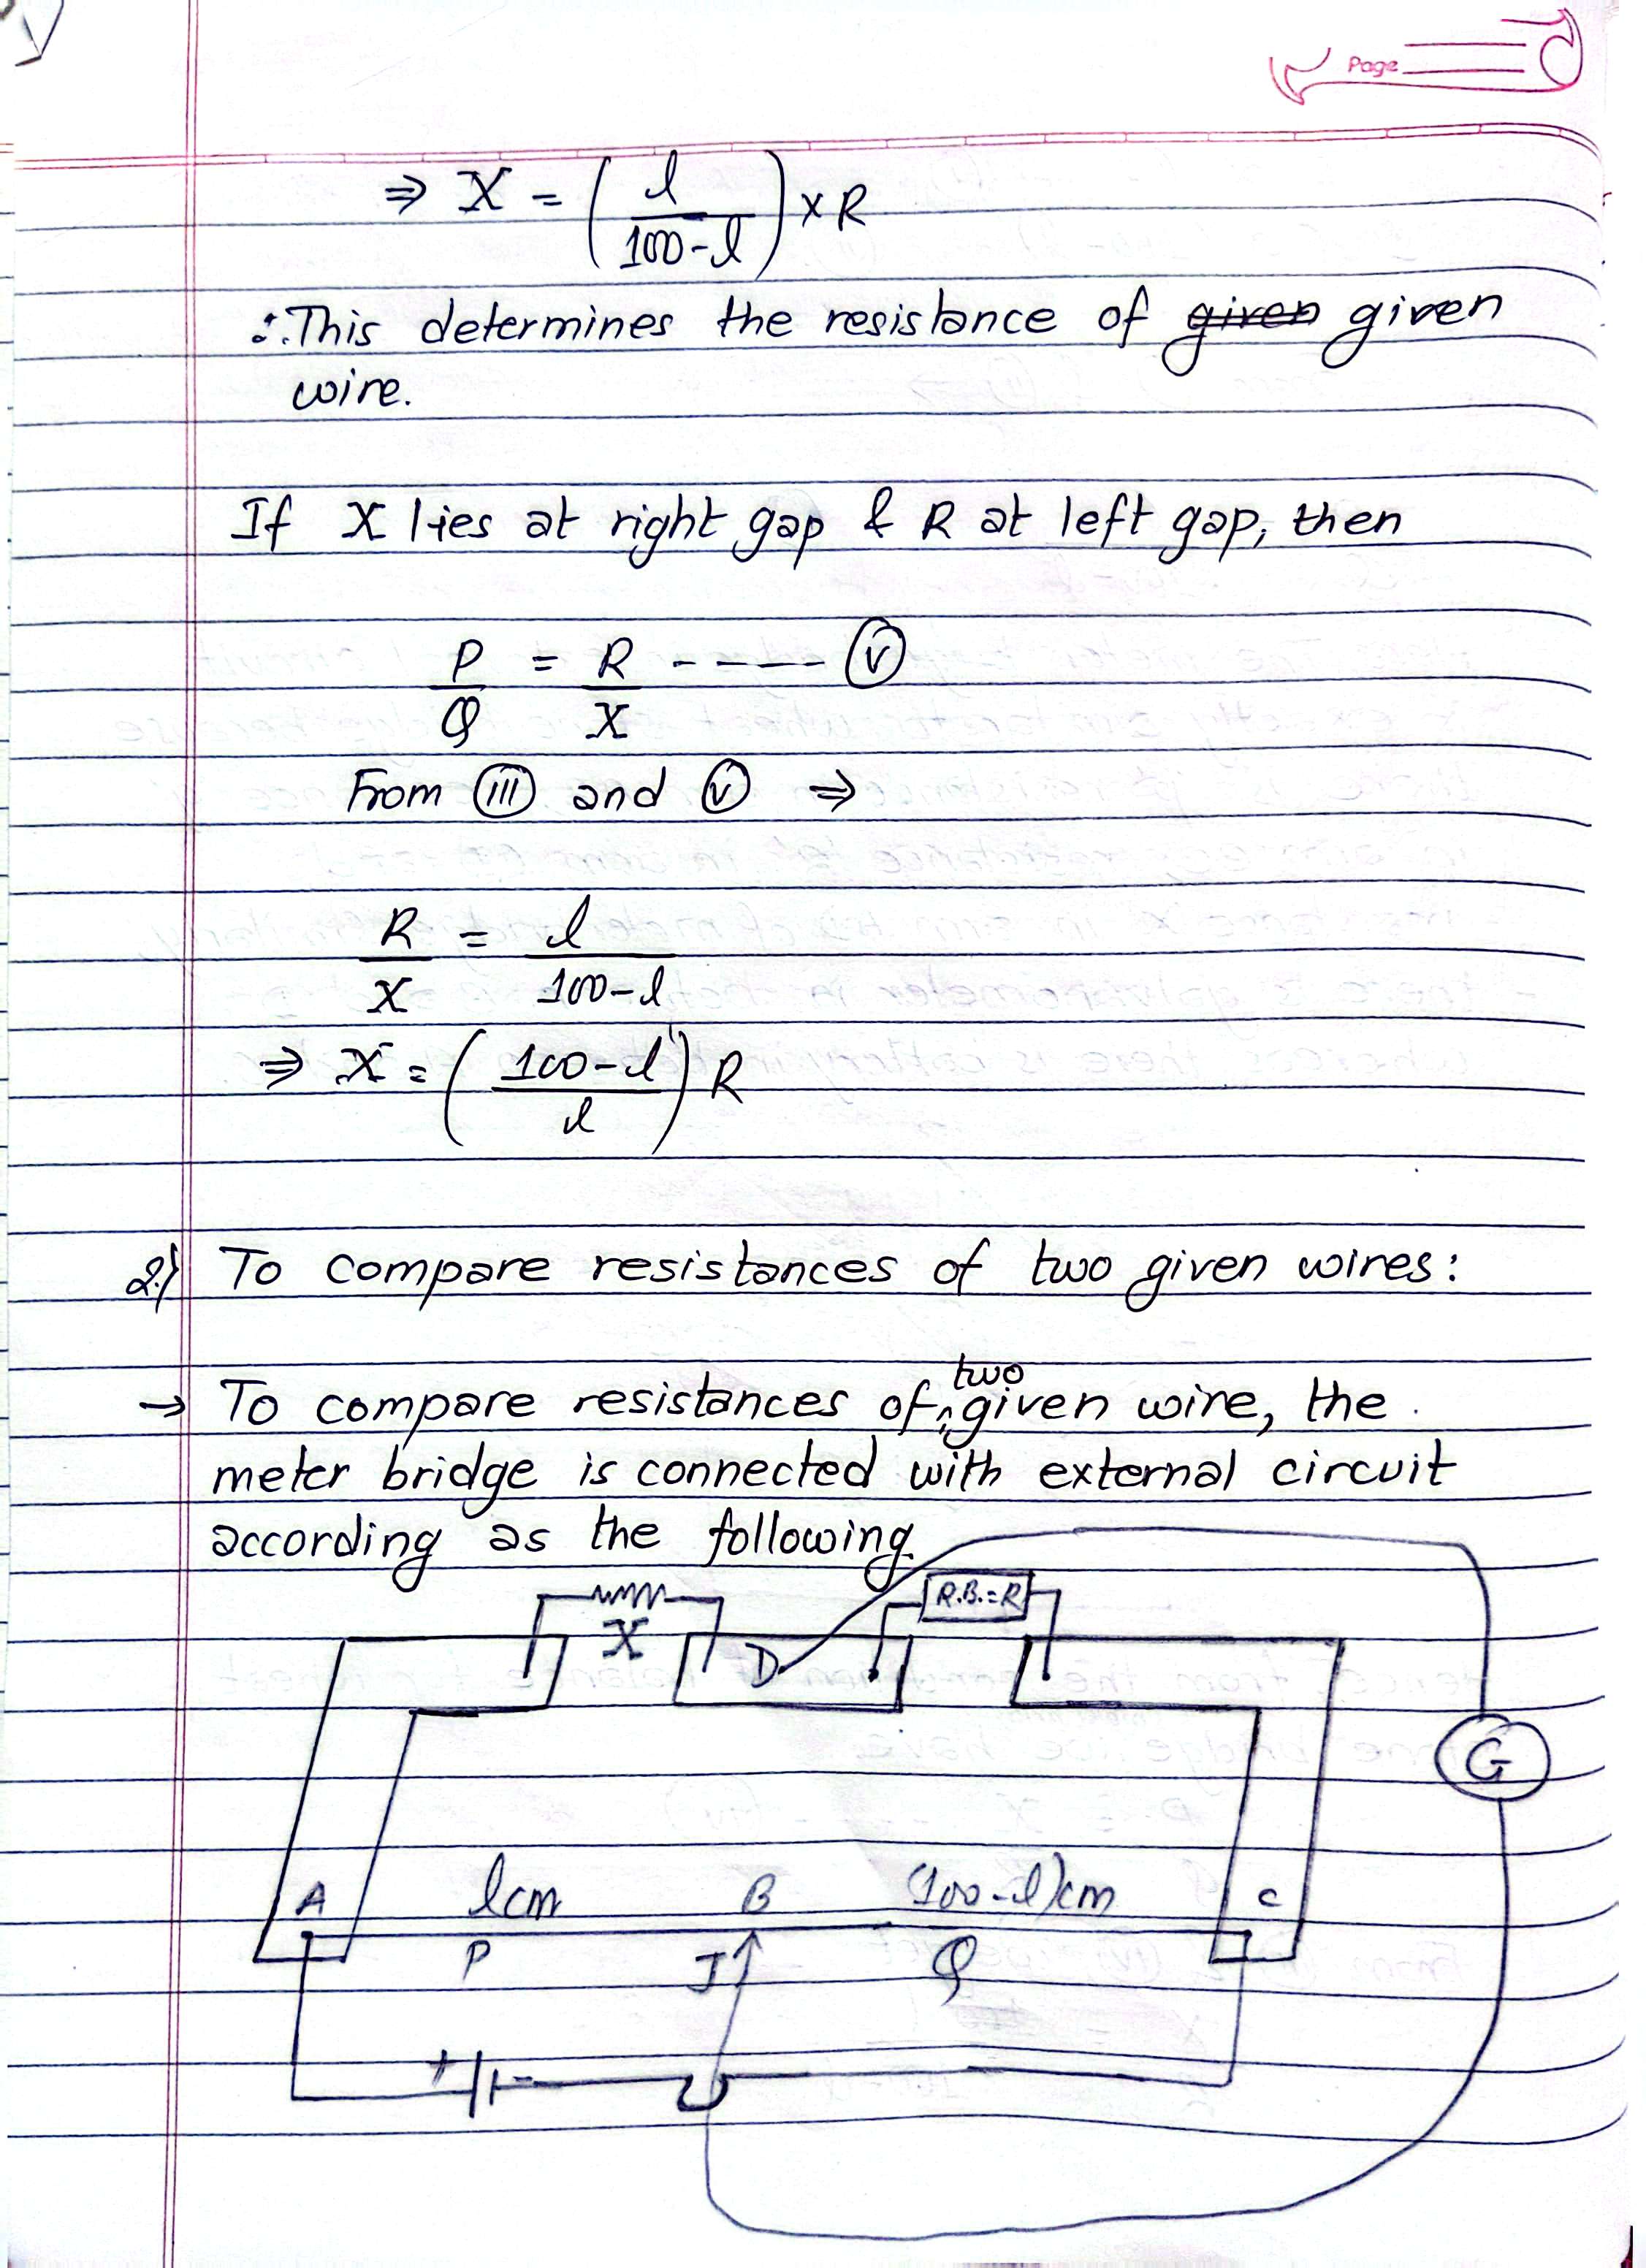 Page
⇒ X = (l / 100-l) × R
∴ This determines the resistance of given given
wire.
If X lies at right gap & R at left gap, then
P/Q = R/X ----- (v)
From (iii) and (v) ⇒
R/X = l / 100-l
⇒ X = (100-l / l) R
2.) To compare resistances of two given wires:
→ To compare resistances of two given wire, the
meter bridge is connected with external circuit
according as the following
R.B.=R
X
D
G
A l cm B (100-l)cm C
P J Q
+ -